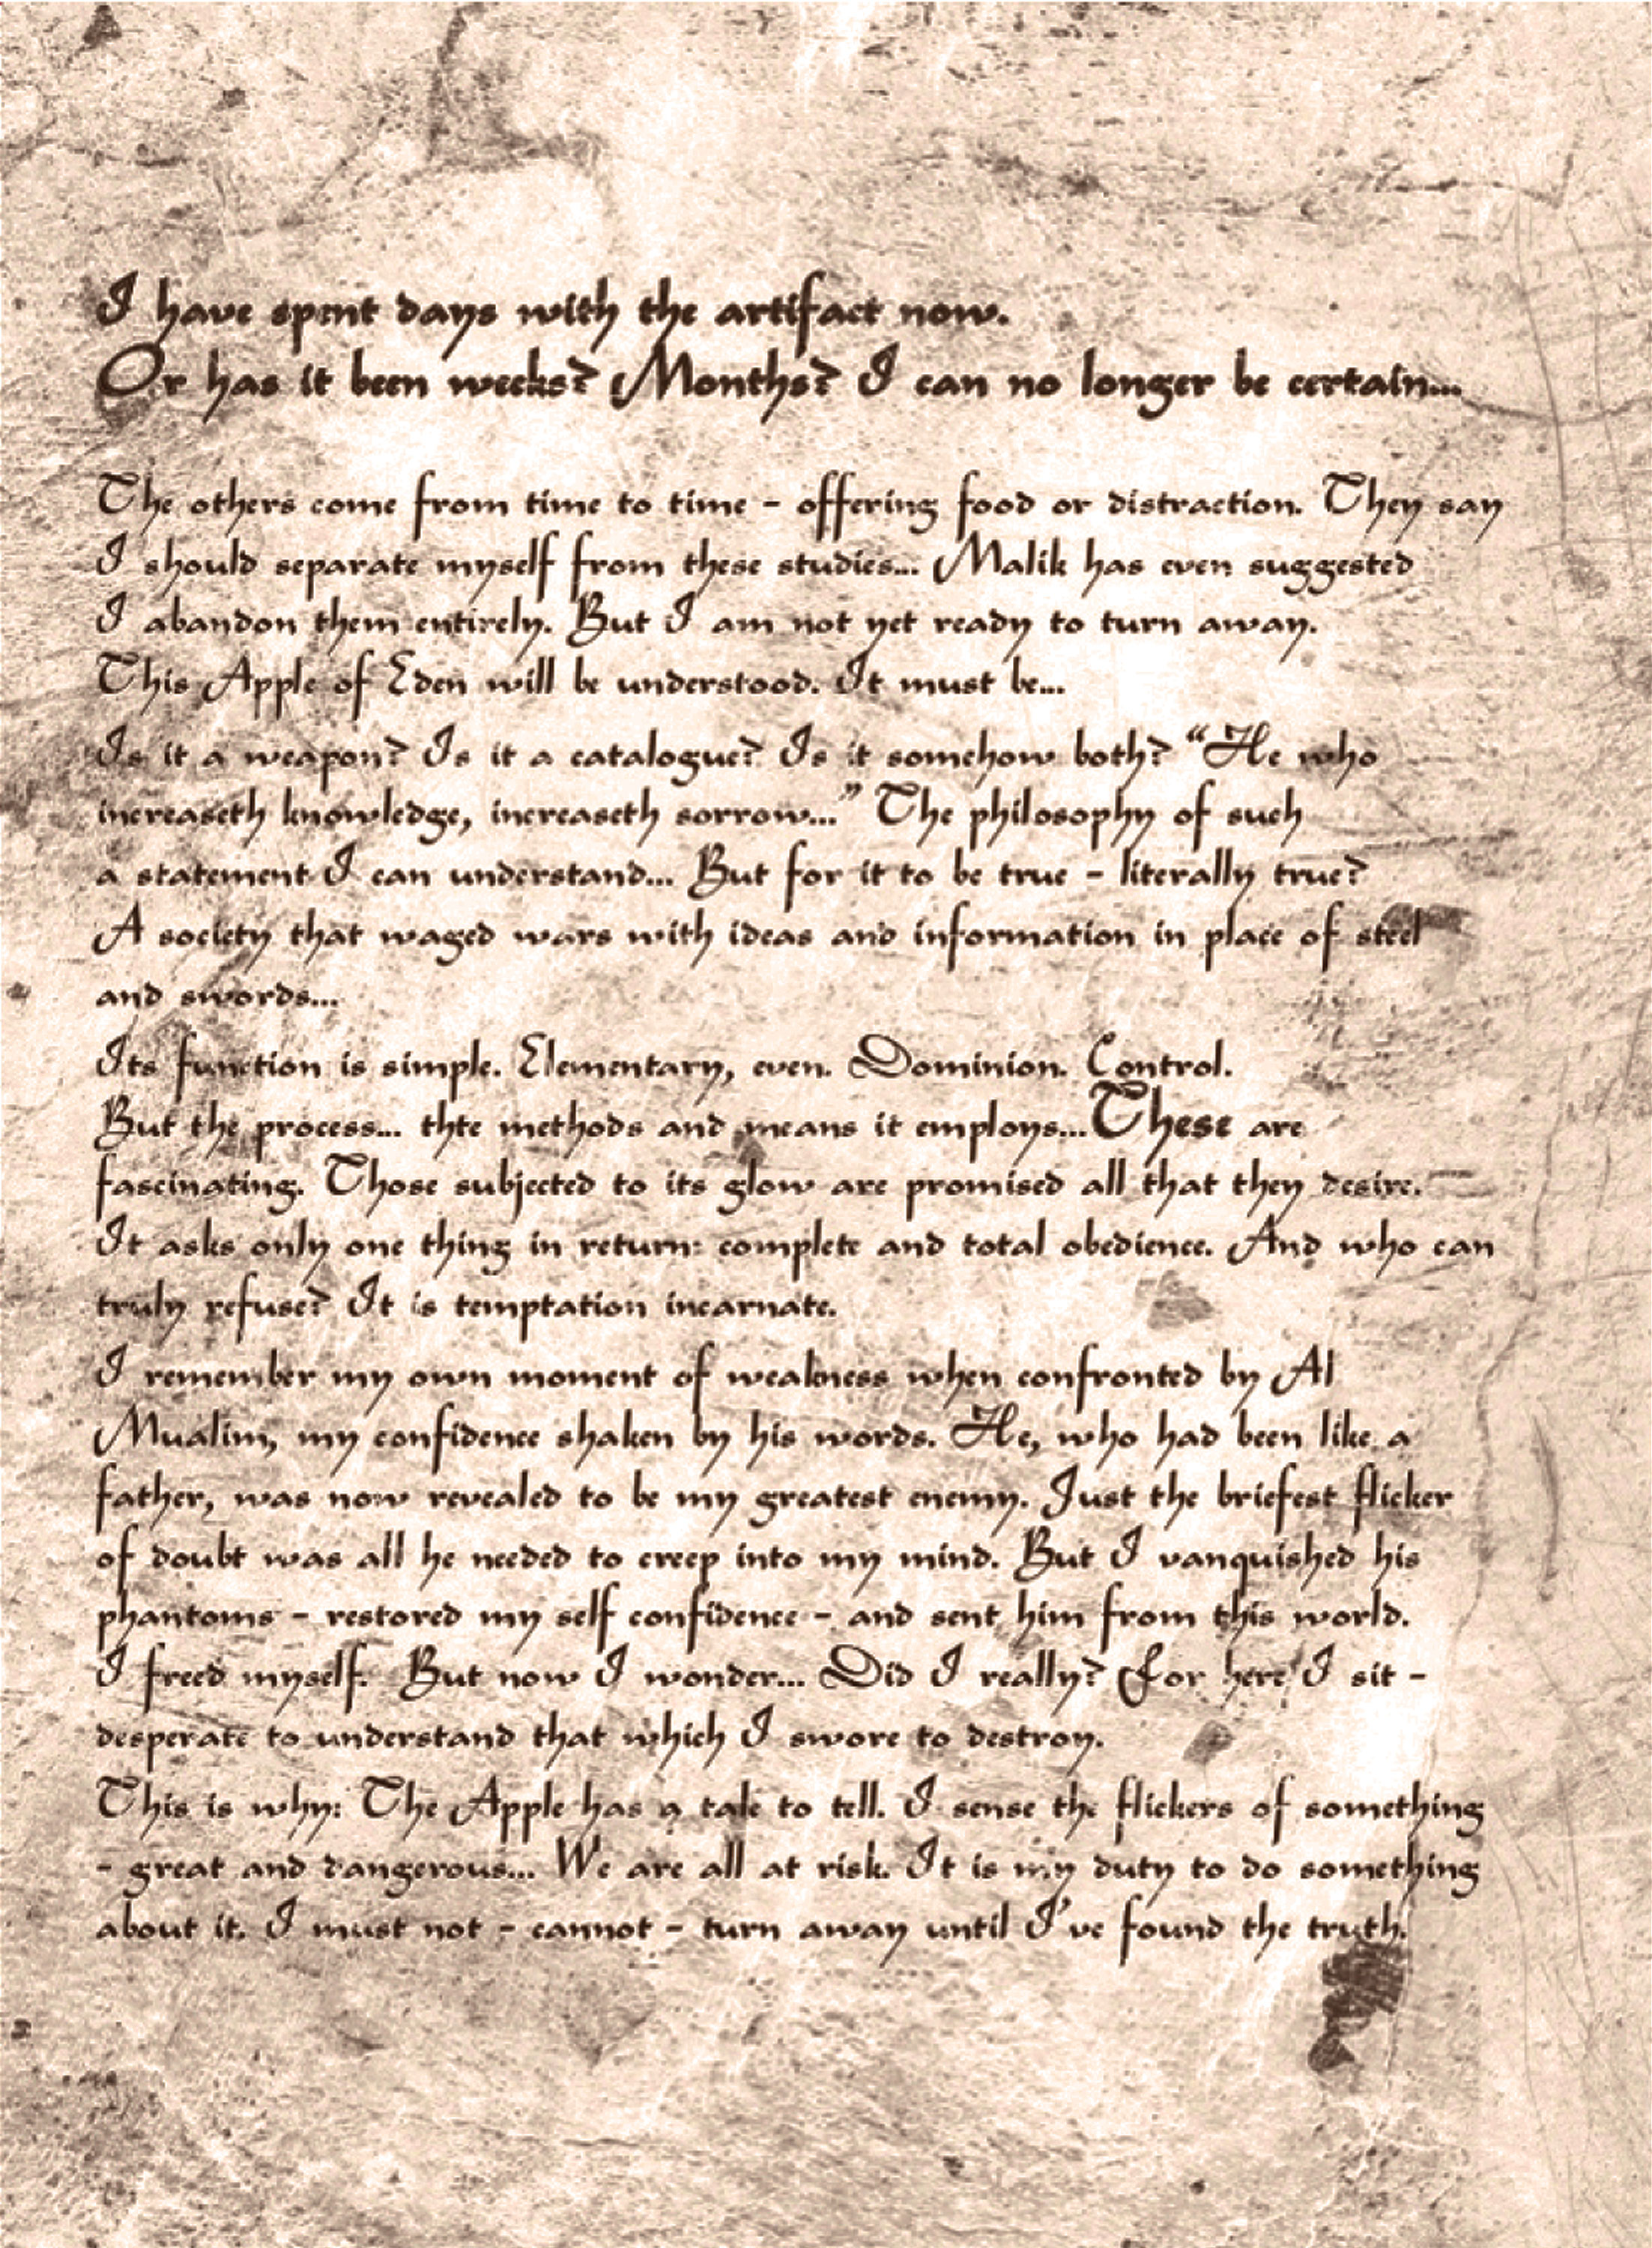 I have spent days with the artifact now.
Or has it been weeks? Months? I can no longer be certain...
The others come from time to time - offering food or distraction. They say
I should separate myself from these studies... Malik has even suggested
I abandon them entirely. But I am not yet ready to turn away.
This Apple of Eden will be understood. It must be...
Is it a weapon? Is it a catalogue? Is it somehow both? “He who
increaseth knowledge, increaseth sorrow...” The philosophy of such
a statement I can understand... But for it to be true - literally true?
A society that waged wars with ideas and information in place of steel
and swords...
Its function is simple. Elementary, even. Dominion. Control.
But the process... thte methods and means it employs...These are
fascinating. Those subjected to its glow are promised all that they desire.
It asks only one thing in return: complete and total obedience. And who can
truly refuse? It is temptation incarnate.
I remember my own moment of weakness when confronted by Al
Mualim, my confidence shaken by his words. He, who had been like a
father, was now revealed to be my greatest enemy. Just the briefest flicker
of doubt was all he needed to creep into my mind. But I vanquished his
phantoms - restored my self confidence - and sent him from this world.
I freed myself. But now I wonder... Did I really? For here I sit -
desperate to understand that which I swore to destroy.
This is why: The Apple has a tale to tell. I sense the flickers of something
- great and dangerous... We are all at risk. It is my duty to do something
about it. I must not - cannot - turn away until I've found the truth.